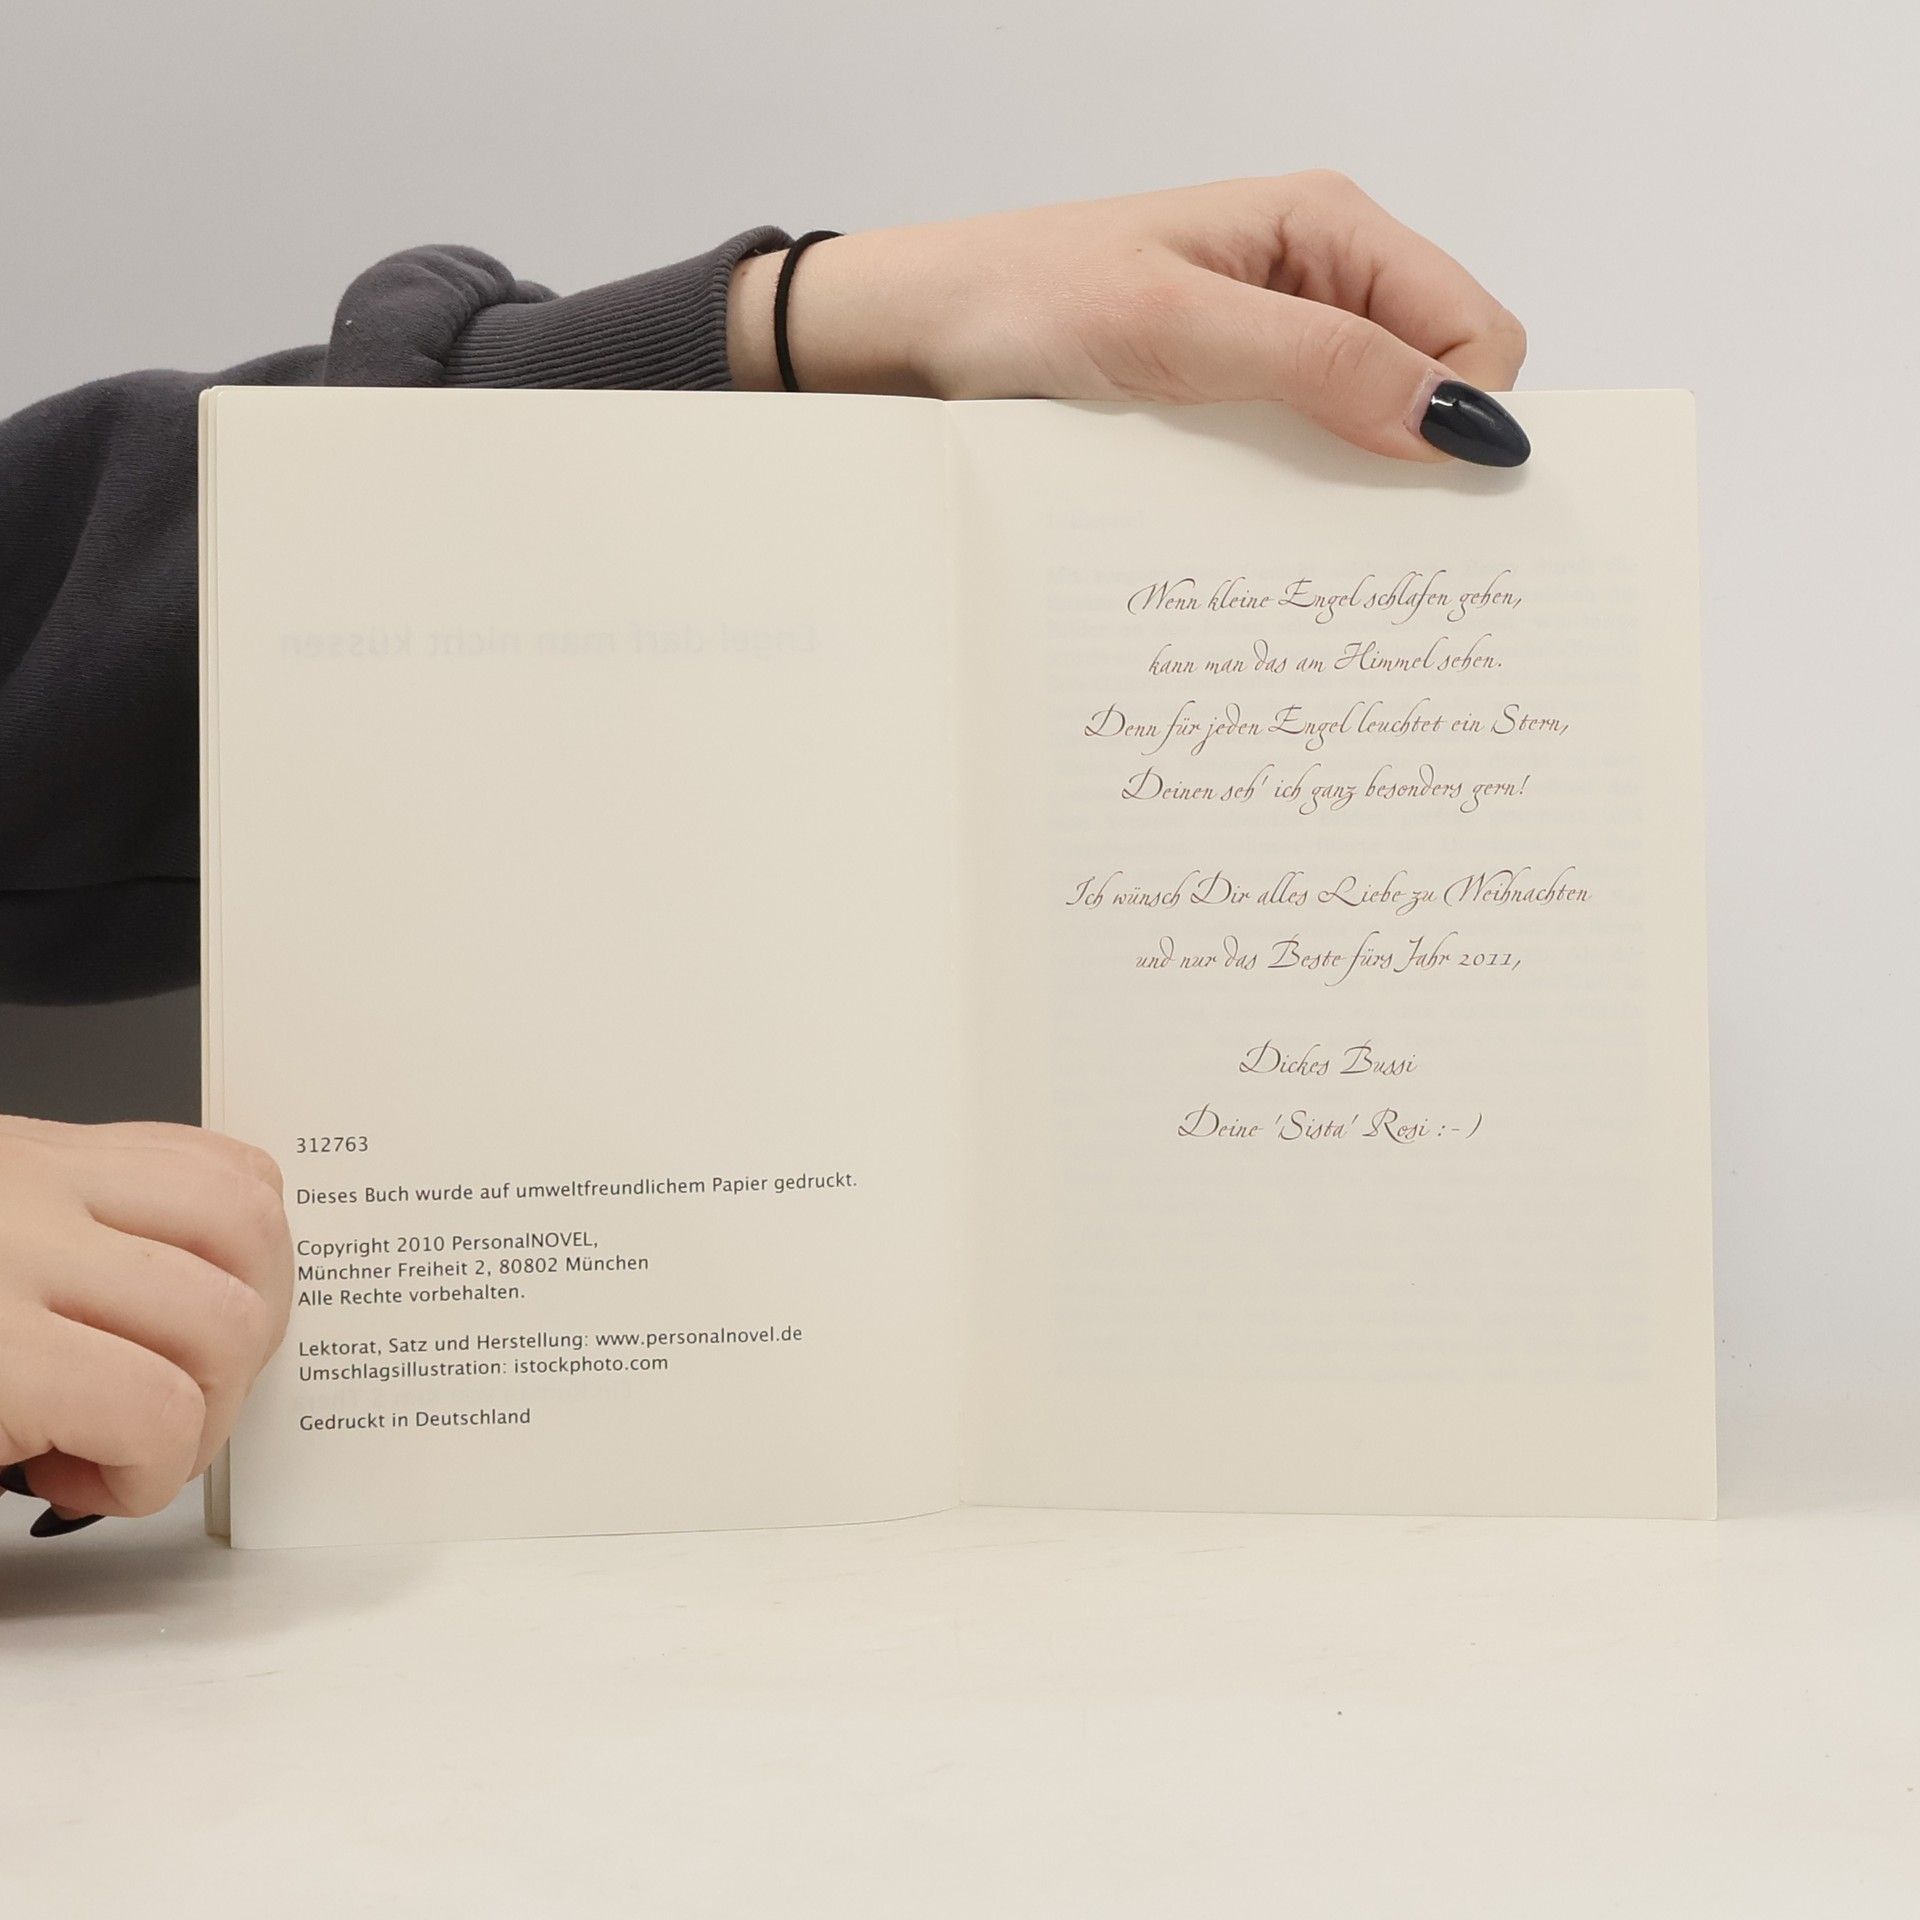 Engel darf man nicht küssen
312763
Dieses Buch wurde auf umweltfreundlichem Papier gedruckt.
Copyright 2010 PersonalNOVEL,
Münchner Freiheit 2, 80802 München
Alle Rechte vorbehalten.
Lektorat, Satz und Herstellung: www.personalnovel.de
Umschlagsillustration: istockphoto.com
Gedruckt in Deutschland
Wenn kleine Engel schlafen gehen,
kann man das am Himmel sehen.
Denn für jeden Engel leuchtet ein Stern,
Deinen seh' ich ganz besonders gern!
Ich wünsch Dir alles Liebe zu Weihnachten
und nur das Beste fürs Jahr 2011,
Dickes Bussi
Deine 'Sista' Rosi :-)